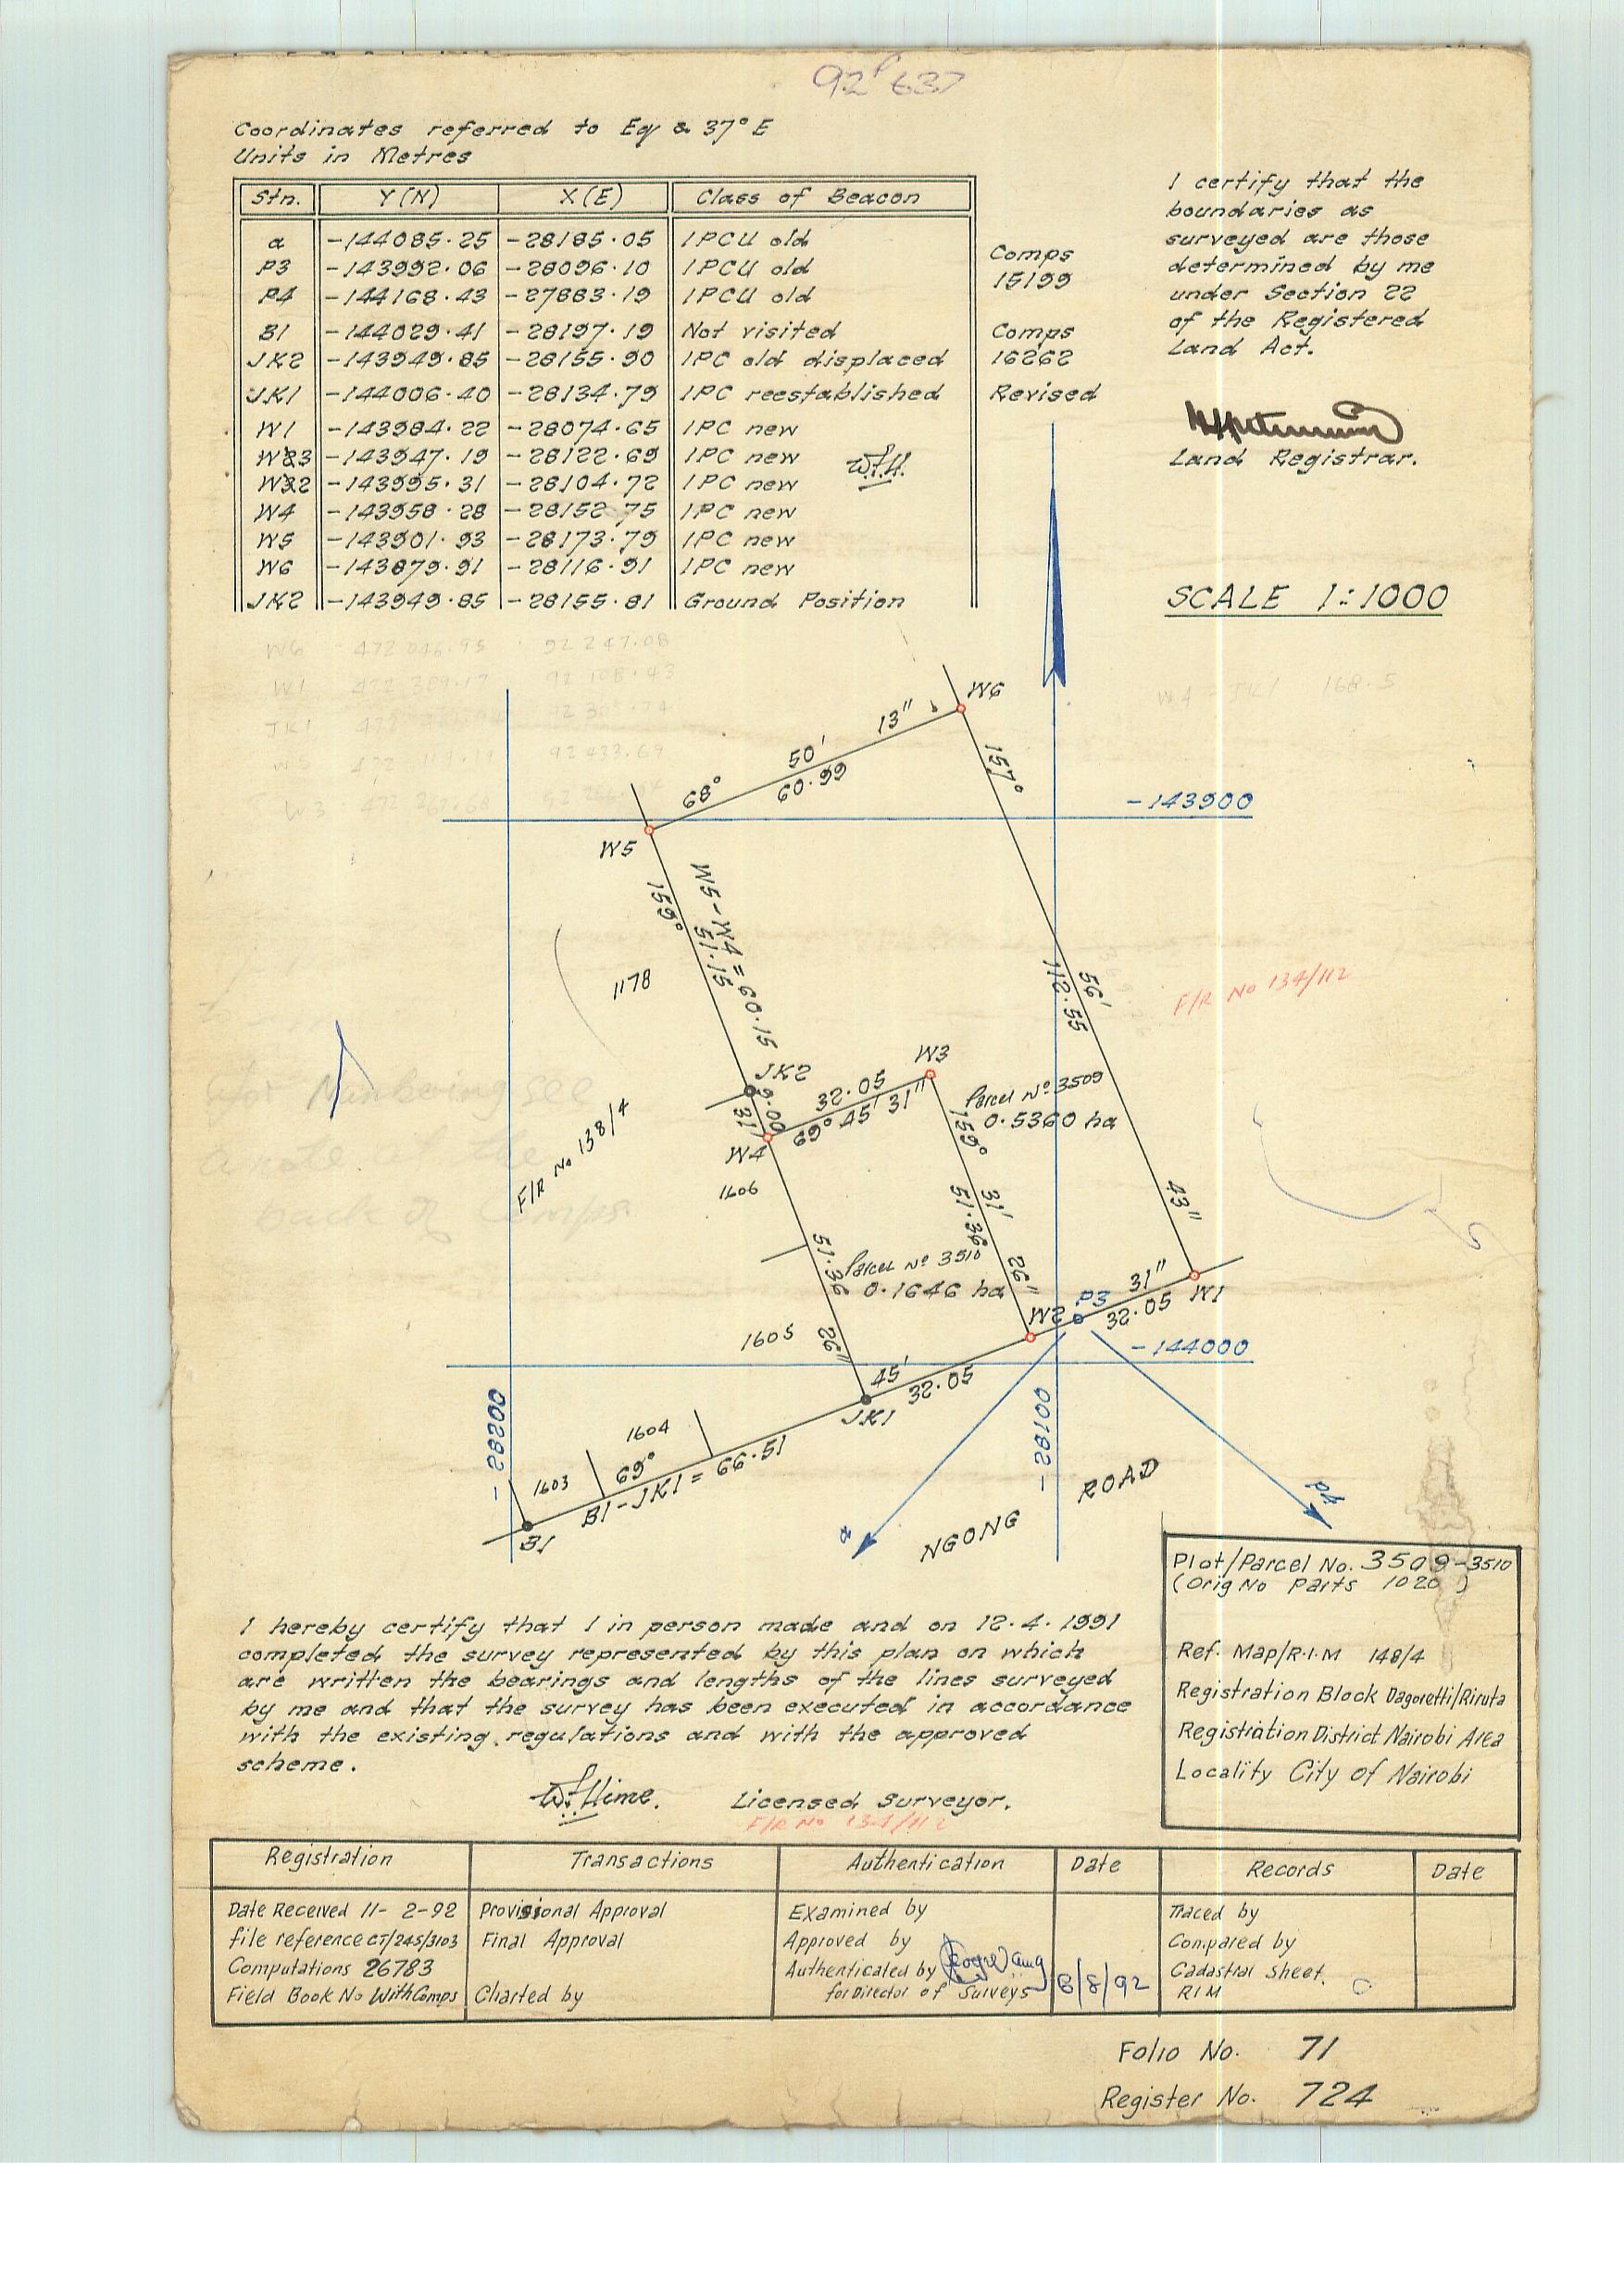 92 637
Coordinates referred to Eq & 37° E
Units in Metres
Stn. Y(N) X(E) Class of Beacon
a -144085.25 -28185.05 IPCU old
P3 -143992.06 -28096.10 IPCU old
P4 -144168.43 -27883.19 IPCU old
Comps
15199
B1 -144029.41 -28197.19 Not visited
JK2 -143949.85 -28155.90 IPC old displaced
Comps
16262
JK1 -144006.40 -28134.79 IPC reestablished Revised
W1 -143984.22 -28074.65 IPC new
W3 -143947.19 -28122.69 IPC new
W2 -143995.31 -28104.72 IPC new
W4 -143958.28 -28152.75 IPC new
W5 -143901.93 -28173.79 IPC new
W6 -143879.91 -28116.91 IPC new
JK2 -143949.85 -28155.81 Ground Position
I certify that the
boundaries as
surveyed are those
determined by me
under Section 22
of the Registered
Land Act.
Land Registrar.
SCALE 1:1000
W6
13"
50'
60.99
68°
157°
-143900
W5
159°
W5-W4 = 60.15
51.15
56'
112.55
F/R No 134/112
1178
JK2
W3
32.05
Parcel No 3509
0.5360 ha
9.00
31'
69° 45' 31"
159°
W4
F/R No 138/4
1606
31'
51.36
43"
51.36
Parcel No 3510
0.1646 ha
26"
31"
W1
P3
32.05
W2
1605
26"
-144000
45'
32.05
JK1
-28200
-28100
1604
66.51
69°
B1-JK1 =
1603
B1
a
NGONG ROAD
P4
Plot/Parcel No. 3509-3510
(Orig No Parts 1020)
Ref. Map/R.I.M 148/4
Registration Block Dagoretti/Riruta
Registration District Nairobi Area
Locality City of Nairobi
I hereby certify that I in person made and on 12.4.1991
completed the survey represented by this plan on which
are written the bearings and lengths of the lines surveyed
by me and that the survey has been executed in accordance
with the existing regulations and with the approved
scheme.
Licensed Surveyor.
F/R No 134/112
Registration Transactions Authentication Date Records Date
Date Received 11-2-92 Provisional Approval Examined by Traced by
file reference CT/245/3103 Final Approval Approved by Compared by
Computations 26783 Authenticated by Cadastral Sheet.
Field Book No With Comps Charted by for Director of Surveys 6/8/92 RIM
Folio No. 71
Register No. 724